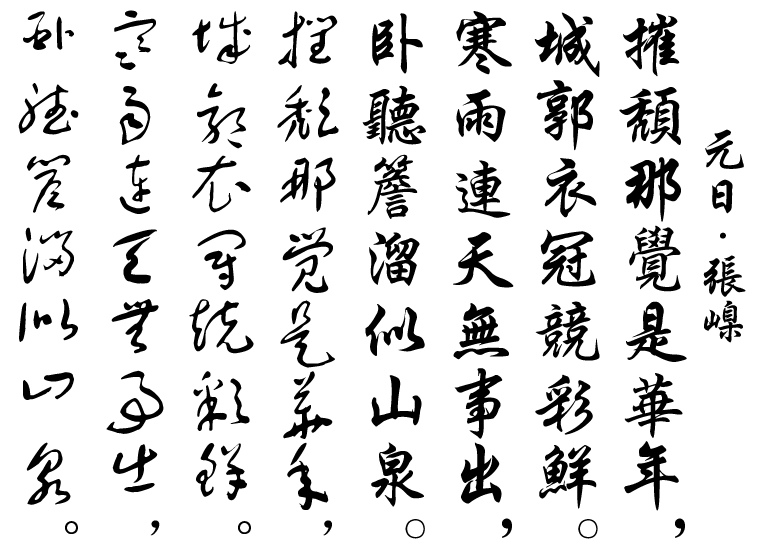 元日·張嵲
摧頹那覺是華年，
城郭衣冠競彩鮮。
寒雨連天無事出，
卧聽簷溜似山泉。
摧頹那覺是華年，
城郭衣冠競彩鮮。
寒雨連天無事出，
卧聽簷溜似山泉。